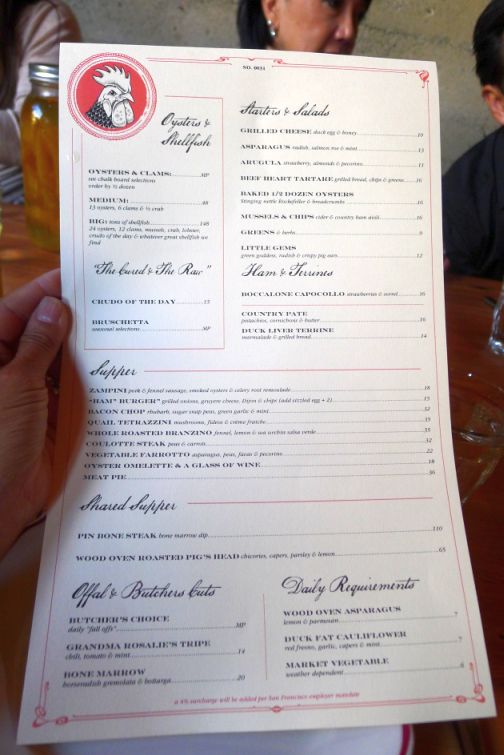 NO. 0034
Oysters & Shellfish
OYSTERS & CLAMS: MP
see chalk board selections
order by ½ dozen
MEDIUM: 48
13 oysters, 6 clams & ½ crab
BIG: tons of shellfish 148
24 oysters, 12 clams, mussels, crab, lobster,
crudo of the day & whatever great shellfish we
find
"The Cured & The Raw"
CRUDO OF THE DAY 15
BRUSCHETTA
seasonal selections MP
Starters & Salads
GRILLED CHEESE duck egg & honey 16
ASPARAGUS radish, salmon roe & mint 13
ARUGULA strawberry, almonds & pecorino 11
BEEF HEART TARTARE grilled bread, chips & greens 16
BAKED 1/2 DOZEN OYSTERS
Stinging nettle Rockefeller & breadcrumbs 16
MUSSELS & CHIPS cider & country ham aioli 16
GREENS & herbs 9
LITTLE GEMS
green goddess, radish & crispy pig ears 12
Ham & Terrines
BOCCALONE CAPOCOLLO strawberries & sorrel 16
COUNTRY PATE
pistachios, cornichons & butter 16
DUCK LIVER TERRINE
marmalade & grilled bread 14
Supper
ZAMPINI pork & fennel sausage, smoked oysters & celery root remoulade 18
"HAM" BURGER grilled onions, gruyere cheese, Dijon & chips (add sizzled egg + 2) 15
BACON CHOP rhubarb, sugar snap peas, green garlic & mint 32
QUAIL TETRAZZINI mushrooms, fideos & crème fraiche 35
WHOLE ROASTED BRANZINO fennel, lemon & sea urchin salsa verde 35
COULOTTE STEAK peas & carrots 32
VEGETABLE FARROTTO asparagus, peas, favas & pecorino 22
OYSTER OMELETTE & A GLASS OF WINE 18
MEAT PIE 36
Shared Supper
PIN BONE STEAK bone marrow dip 110
WOOD OVEN ROASTED PIG'S HEAD chicories, capers, parsley & lemon 65
Offal & Butchers Cuts
BUTCHER'S CHOICE
daily "fall offs" MP
GRANDMA ROSALIE'S TRIPE
chili, tomato & mint 14
BONE MARROW
horseradish gremolata & bottarga 20
Daily Requirements
WOOD OVEN ASPARAGUS
lemon & parmesan 7
DUCK FAT CAULIFLOWER
red fresno, garlic, capers & mint 7
MARKET VEGETABLE
weather dependent 6
a 4% surcharge will be added per San Francisco employer mandate